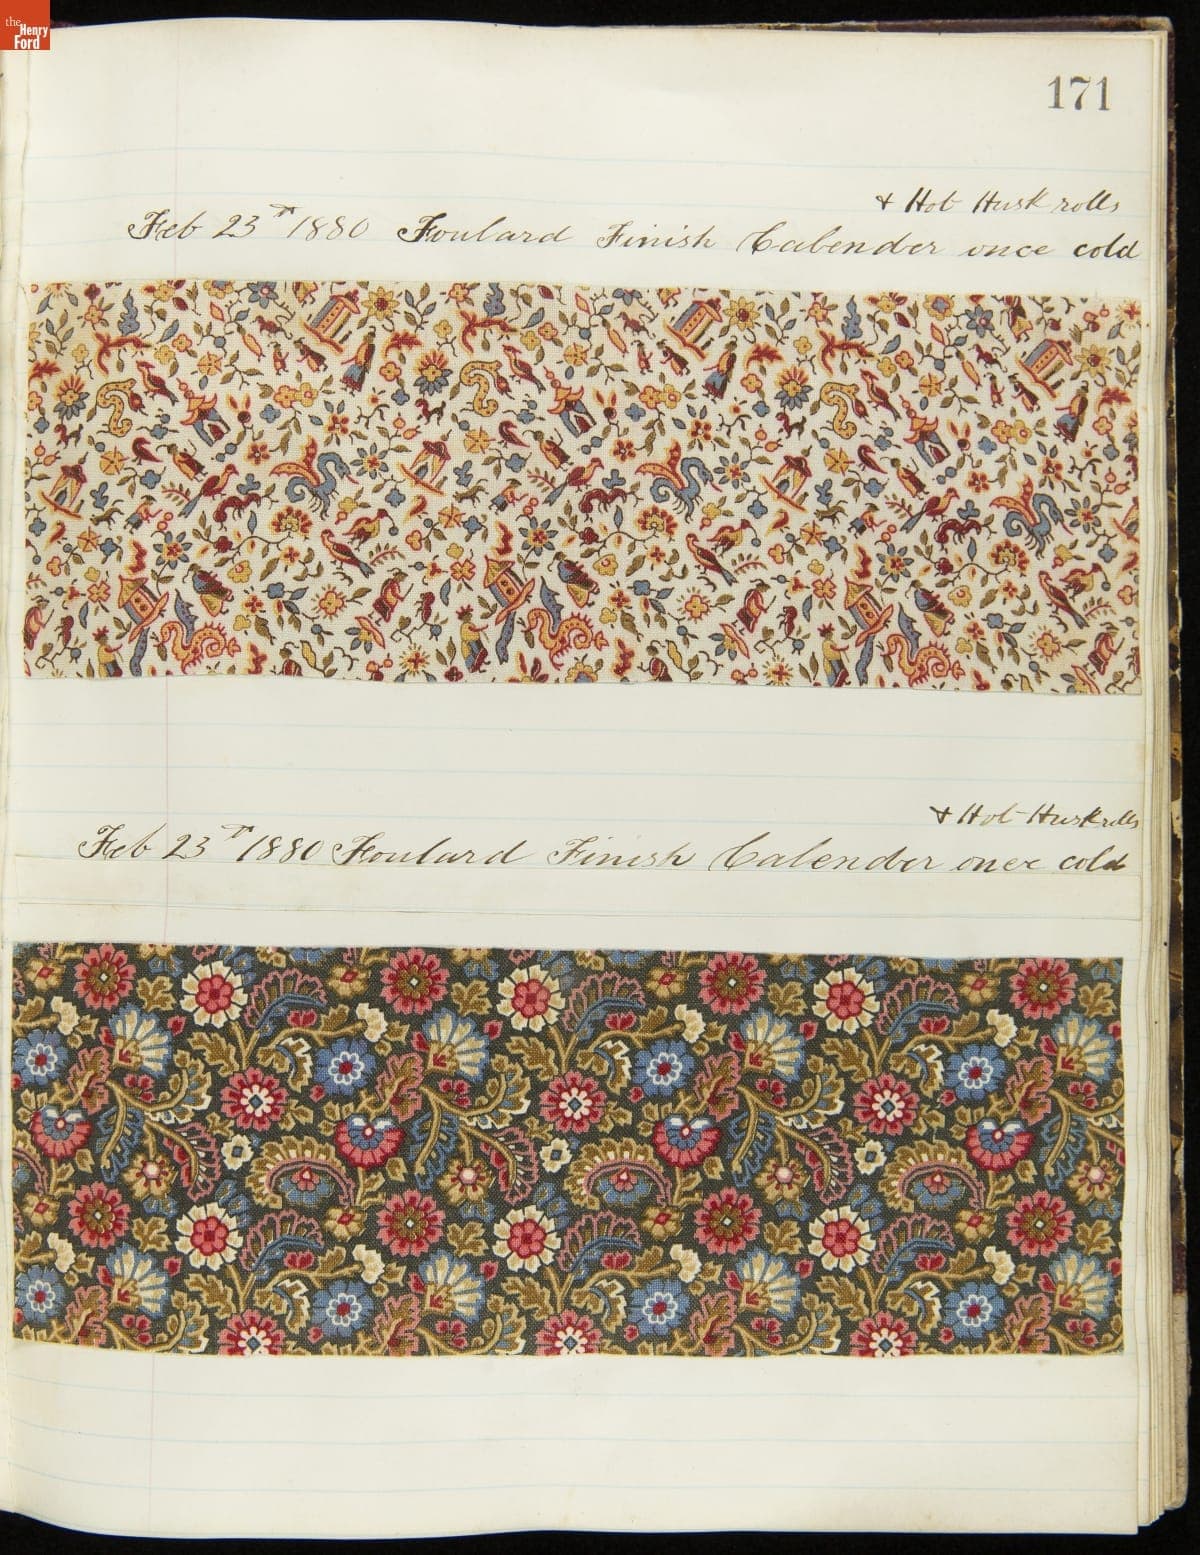 the
Henry
Ford
171
+ Hot Husk rolls
Feb 23rd 1880 Foulard Finish Calender once cold
+ Hot Husk rolls
Feb 23rd 1880 Foulard Finish Calender once cold